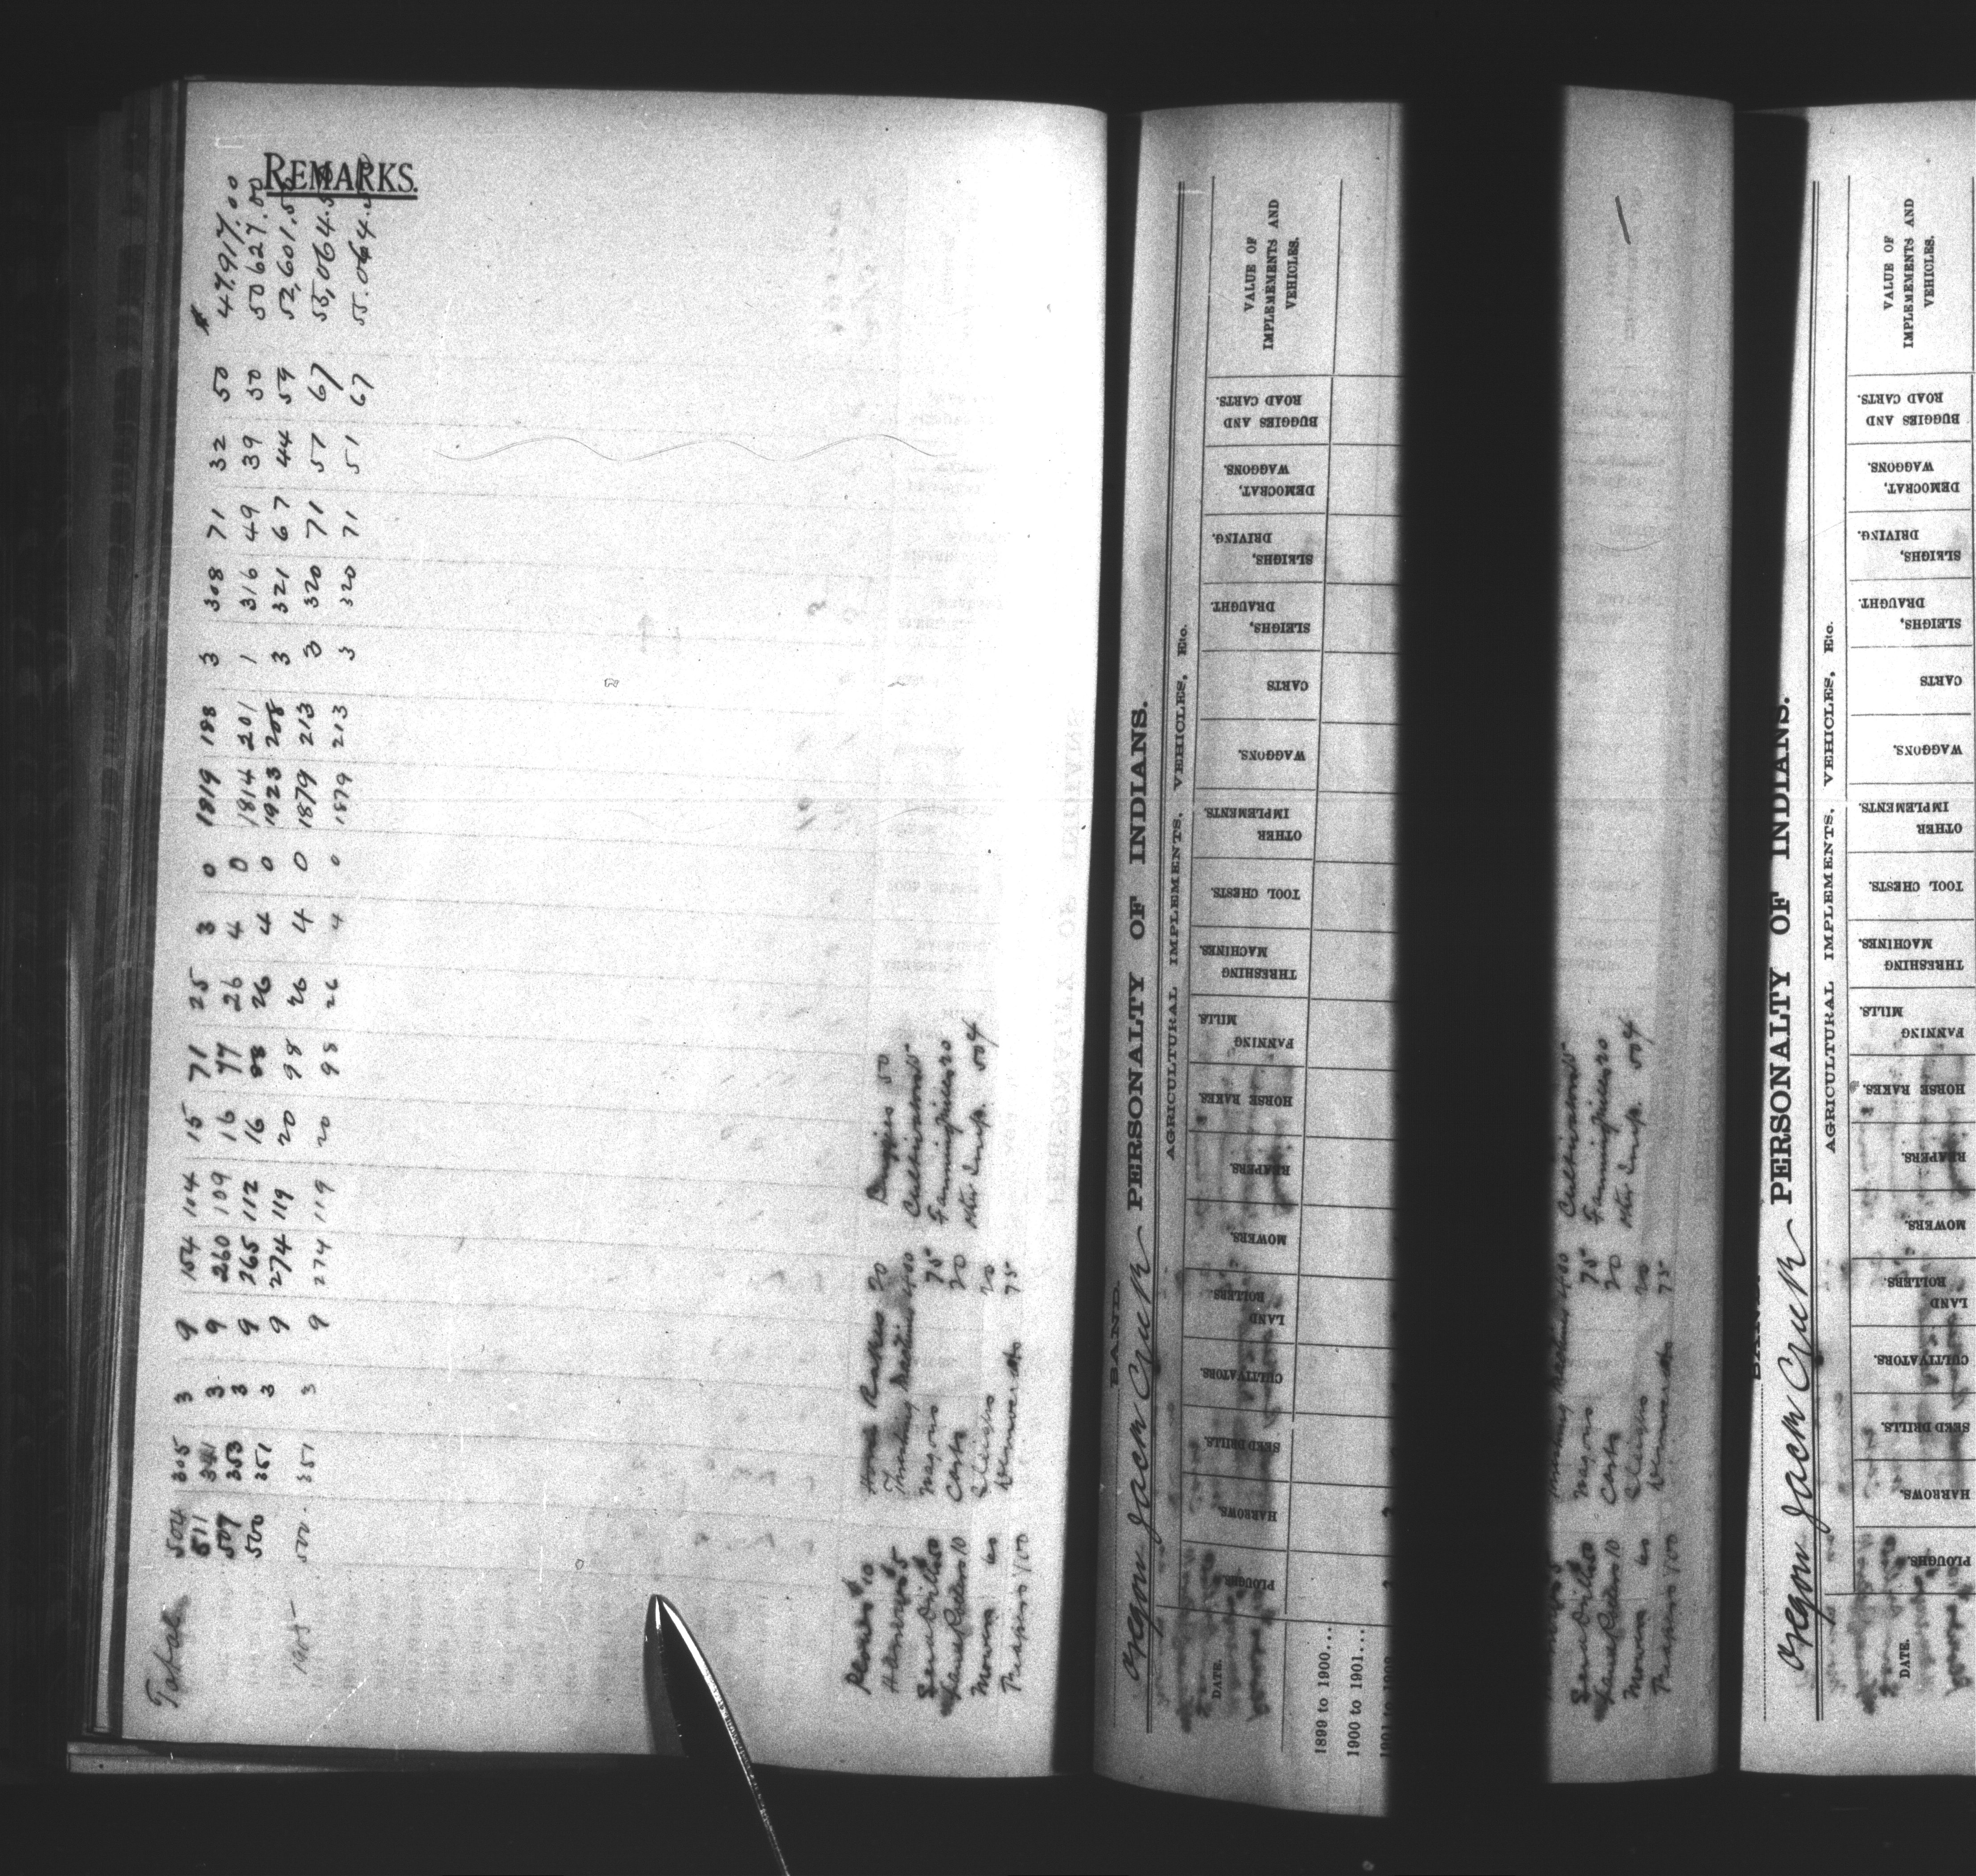 REMARKS.
Total 504 305 3 9 154 104 15 71 25 3 0 1819 198 3 308 71 32 50 $ 47,917.00
511 341 3 9 260 109 16 77 26 4 0 1814 201 1 316 49 39 50 50 627.00
507 353 3 9 265 112 16 88 26 4 0 1923 208 3 321 67 44 59 52,601.50
500 351 3 9 274 119 20 98 26 4 0 1879 213 3 320 71 51 67 55,064.50
1905 500 351 3 9 274 119 20 98 26 4 0 1879 213 3 320 71 51 67 55.064.50
Ploughs $10 Horse Rakes 20 Buggies 50
Harrows $5 Threshing Machines 400 Cultivators 15
Seed Drills 50 Wagons 75 Fanning Mills 20
Land Rollers 10 Carts 20 Other Imp. 50¢
Mowers 60 Sleighs 20
Reapers 100 Democrats 75
BAND.
Oregon Jack Creek PERSONALTY OF INDIANS.
AGRICULTURAL IMPLEMENTS, VEHICLES, Etc.
DATE.
PLOUGHS.
HARROWS.
SEED DRILLS.
CULTIVATORS.
LAND
ROLLERS.
MOWERS.
REAPERS.
HORSE RAKES.
FANNING
MILLS.
THRESHING
MACHINES.
TOOL CHESTS.
OTHER
IMPLEMENTS.
WAGGONS.
CARTS
SLEIGHS,
DRAUGHT.
SLEIGHS,
DRIVING.
DEMOCRAT,
WAGGONS.
BUGGIES AND
ROAD CARTS.
VALUE OF
IMPLEMEMENTS AND
VEHICLES.
1899 to 1900...
1900 to 1901...
Cultivators 15
Seed Drills 50 Wagons 75 Fanning Mills 20
Land Rollers 10 Carts 20 Other Imp. 50¢
Mowers 60 Sleighs 20
Reapers 100 Democrats 75
Oregon Jack Creek PERSONALTY OF INDIANS.
AGRICULTURAL IMPLEMENTS, VEHICLES, Etc.
DATE.
PLOUGHS.
HARROWS.
SEED DRILLS.
CULTIVATORS.
LAND
ROLLERS.
MOWERS.
REAPERS.
HORSE RAKES.
FANNING
MILLS.
THRESHING
MACHINES.
TOOL CHESTS.
OTHER
IMPLEMENTS.
WAGGONS.
CARTS
SLEIGHS,
DRAUGHT.
SLEIGHS,
DRIVING.
DEMOCRAT,
WAGGONS.
BUGGIES AND
ROAD CARTS.
VALUE OF
IMPLEMEMENTS AND
VEHICLES.